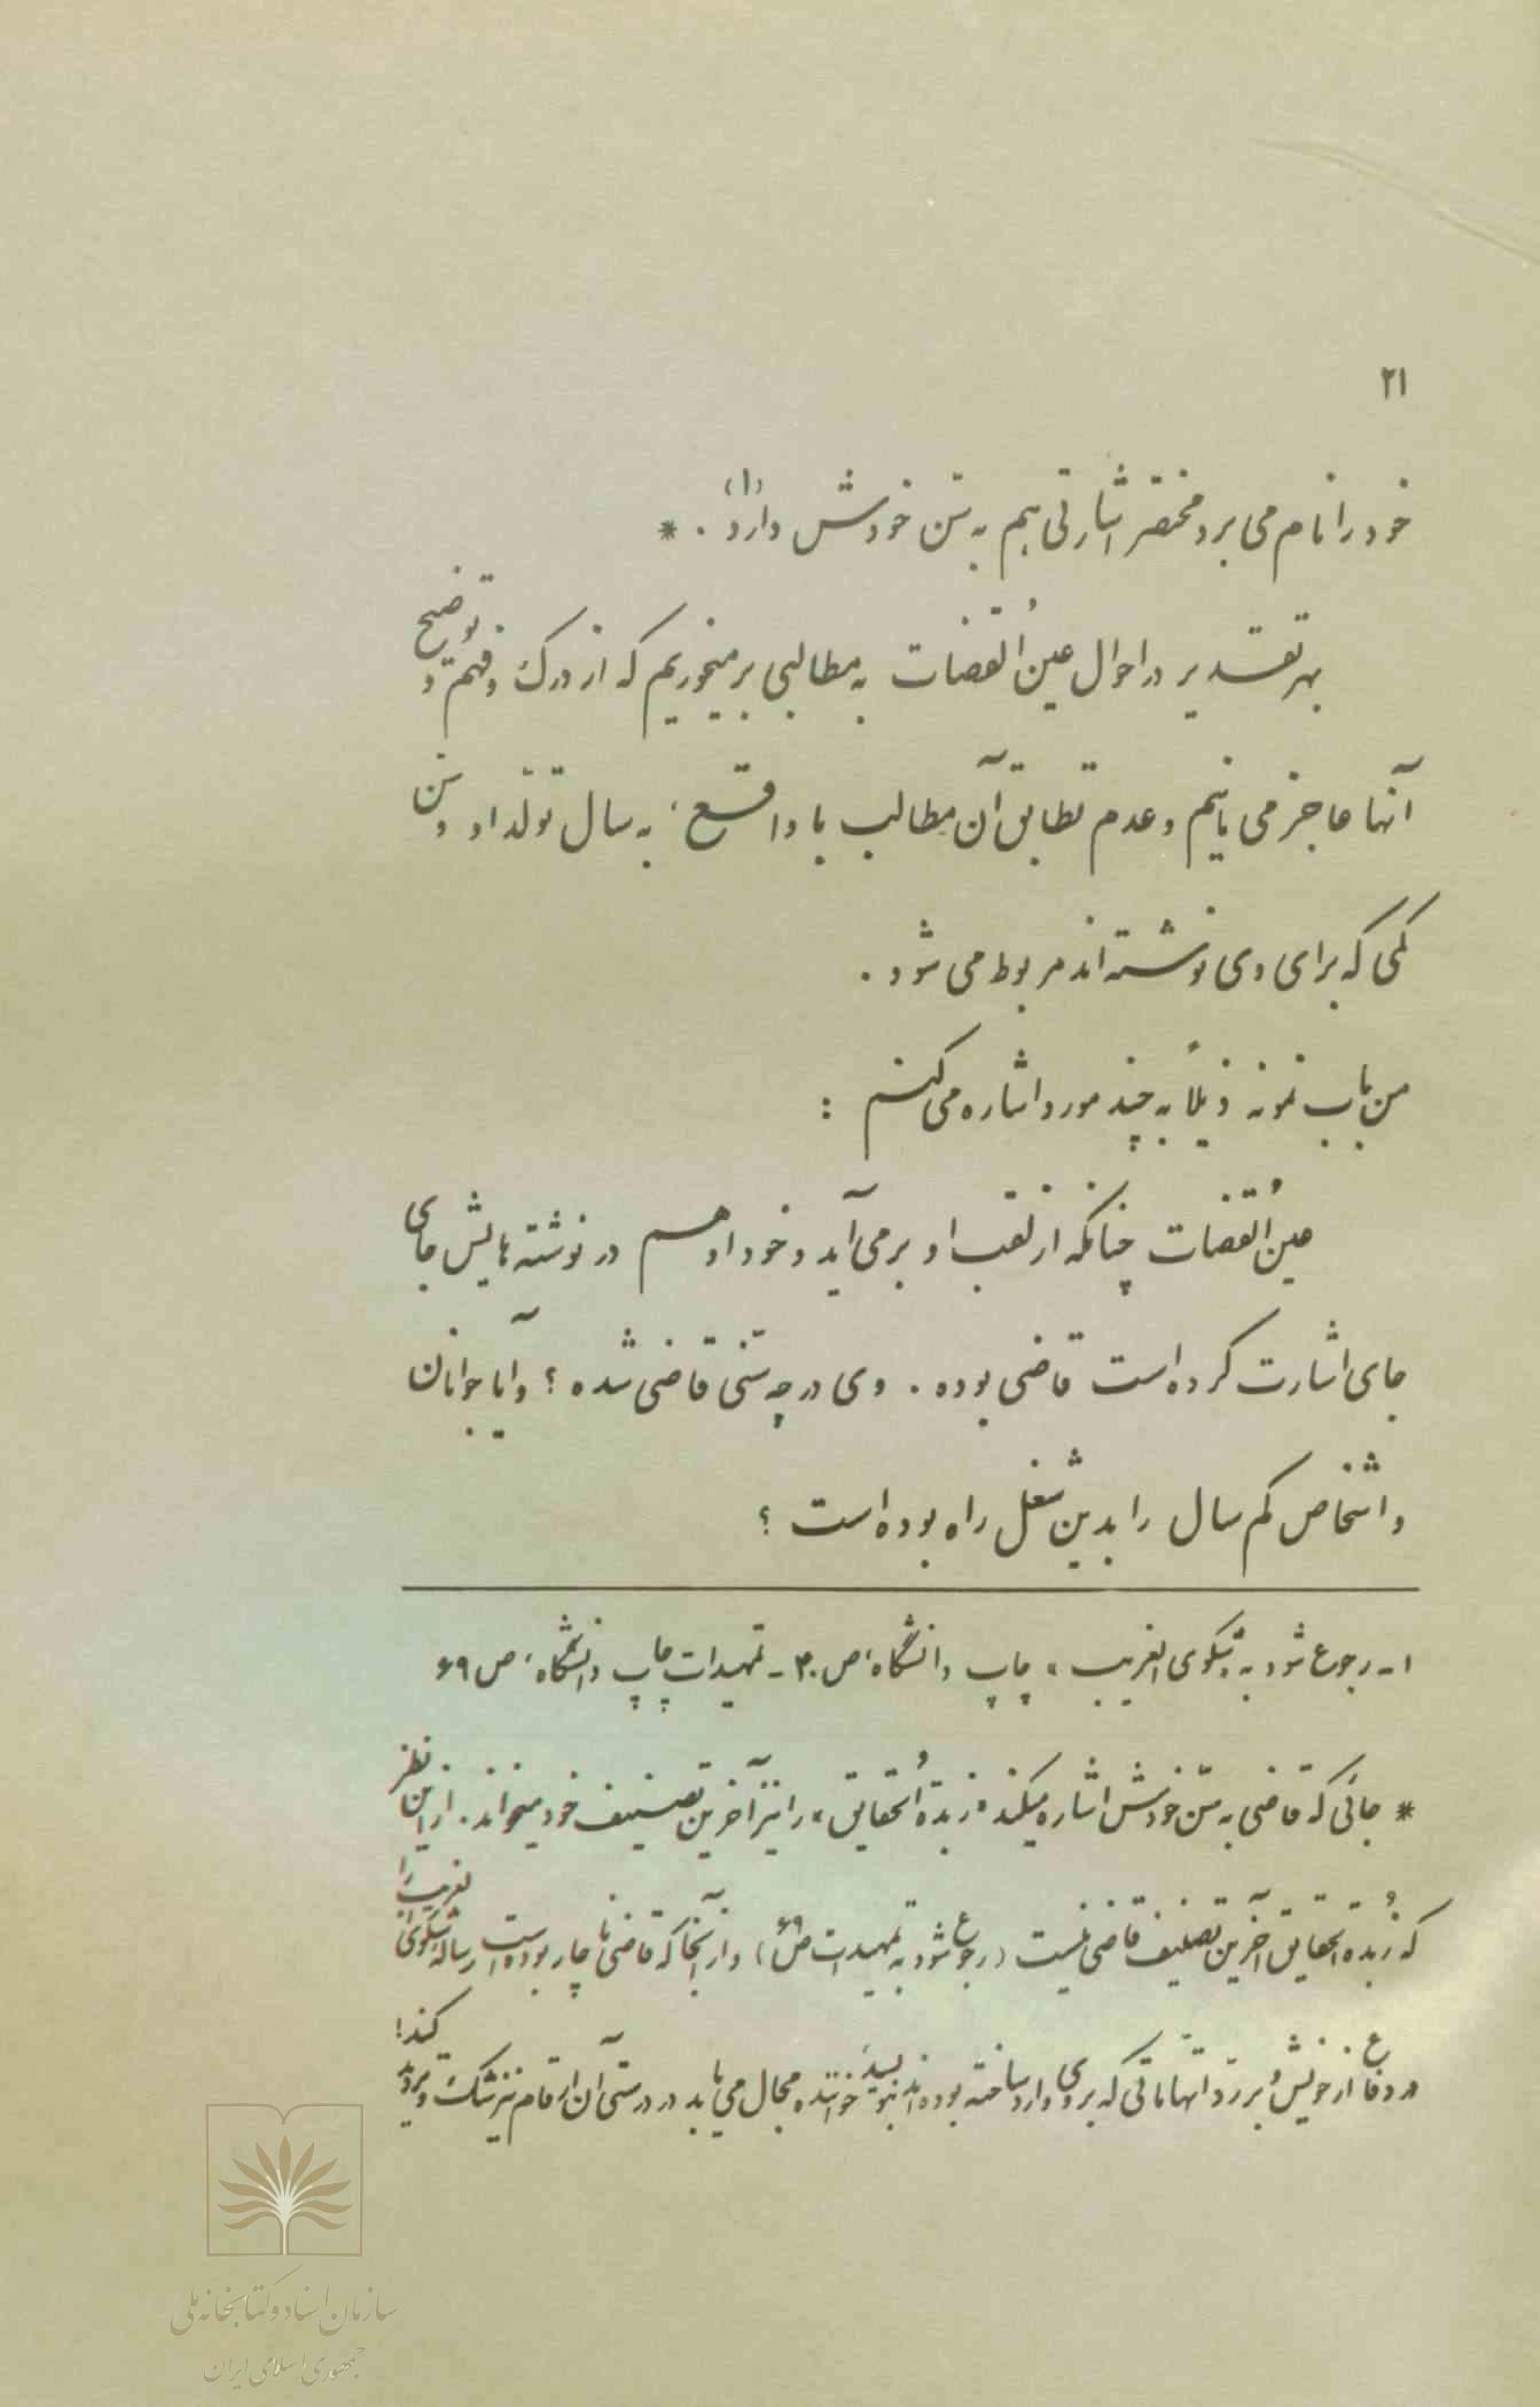 ۲۱
خود را نام می برد مختصر اشارتی هم به سّن خودش دارد (۱) . *
بهر تقدیر در احوال عینُ القضات به مطالبی بر میخوریم که از درک و فهم و توضیح
آنها عاجز می مانیم و عدم تطابق آن مطالب با واقع ، به سال تولد او و سّن
کمی که برای وی نوشته اند مربوط می شود .
من باب نمونه ذیلاً به چند مورد اشاره می کنم :
عینُ القضات چنانکه از لقب او بر می آید و خود او هم در نوشته هایش جای
جای اشارت کرده است قاضی بوده . وی در چه سّنی قاضی شده ؟ و آیا جوانان
و اشخاص کم سال را بدین شغل راه بوده است ؟
۱ - رجوع شود به شکوی الغریب ، چاپ دانشگاه ، ص ۴۰ - تمهیدات چاپ دانشگاه ، ص ۶۹
* جائی که قاضی به سّن خودش اشاره میکند « زبدة الحقایق » را نیز آخرین تصنیف خود میخواند . از این نظر
که زُبدة الحقایق آخرین تصنیف قاضی نیست ( رجوع شود به تمهیدات ص ۶۹ ) و از آنجا که قاضی ناچار بوده است رساله شکوی الغریب را
در دفاع از خویش و بر ردّ اتهاماتی که بر وی وارد ساخته بوده اند بنویسد ، خواننده مجال می یابد در درستی آن ارقام نیز شک و تردید کند !
سازمان اسناد و کتابخانه ملی
جمهوری اسلامی ایران